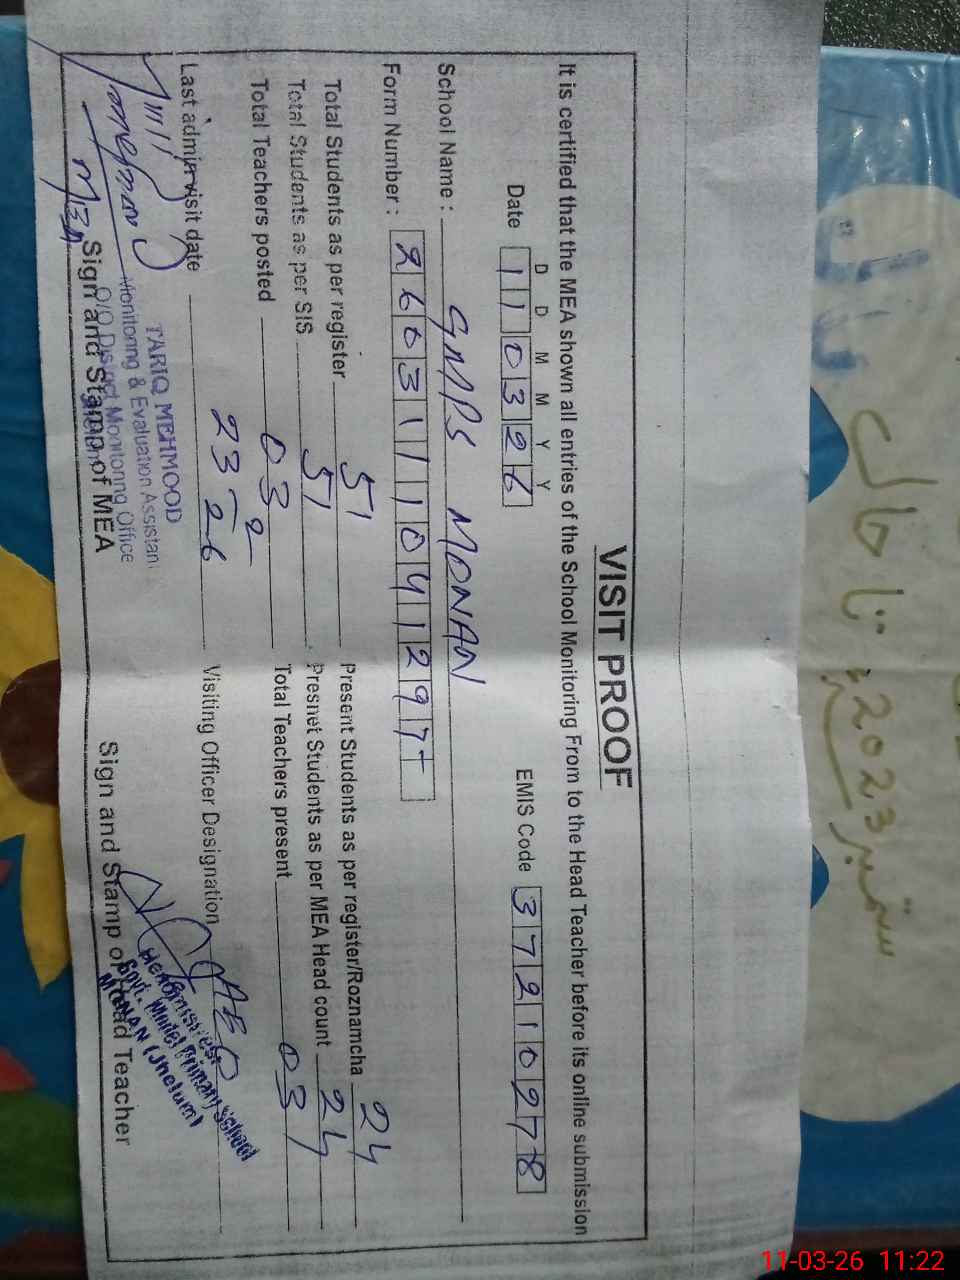 VISIT PROOF
It is certified that the MEA shown all entries of the School Monitoring From to the Head Teacher before its online submission
D D M M Y Y
Date 110326 EMIS Code 37210278
School Name : GMPS MONAN
Form Number : 2603111041297
Total Students as per register 51 Present Students as per register/Roznamcha 24
Total Students as per SIS 51 Presnet Students as per MEA Head count 24
Total Teachers posted 03 Total Teachers present 03
Last admin visit date 23-2-26 Visiting Officer Designation AEO
MEA
TARIQ MEHMOOD
Monitoring & Evaluation Assistan
O/O District Monitoring Office
Sign and Stamp of MEA
Headmistress
Govt. Model Primary School
MONAN (Jhelum)
Sign and Stamp of Head Teacher
ستمبر 2023ء تا حال
11-03-26 11:22